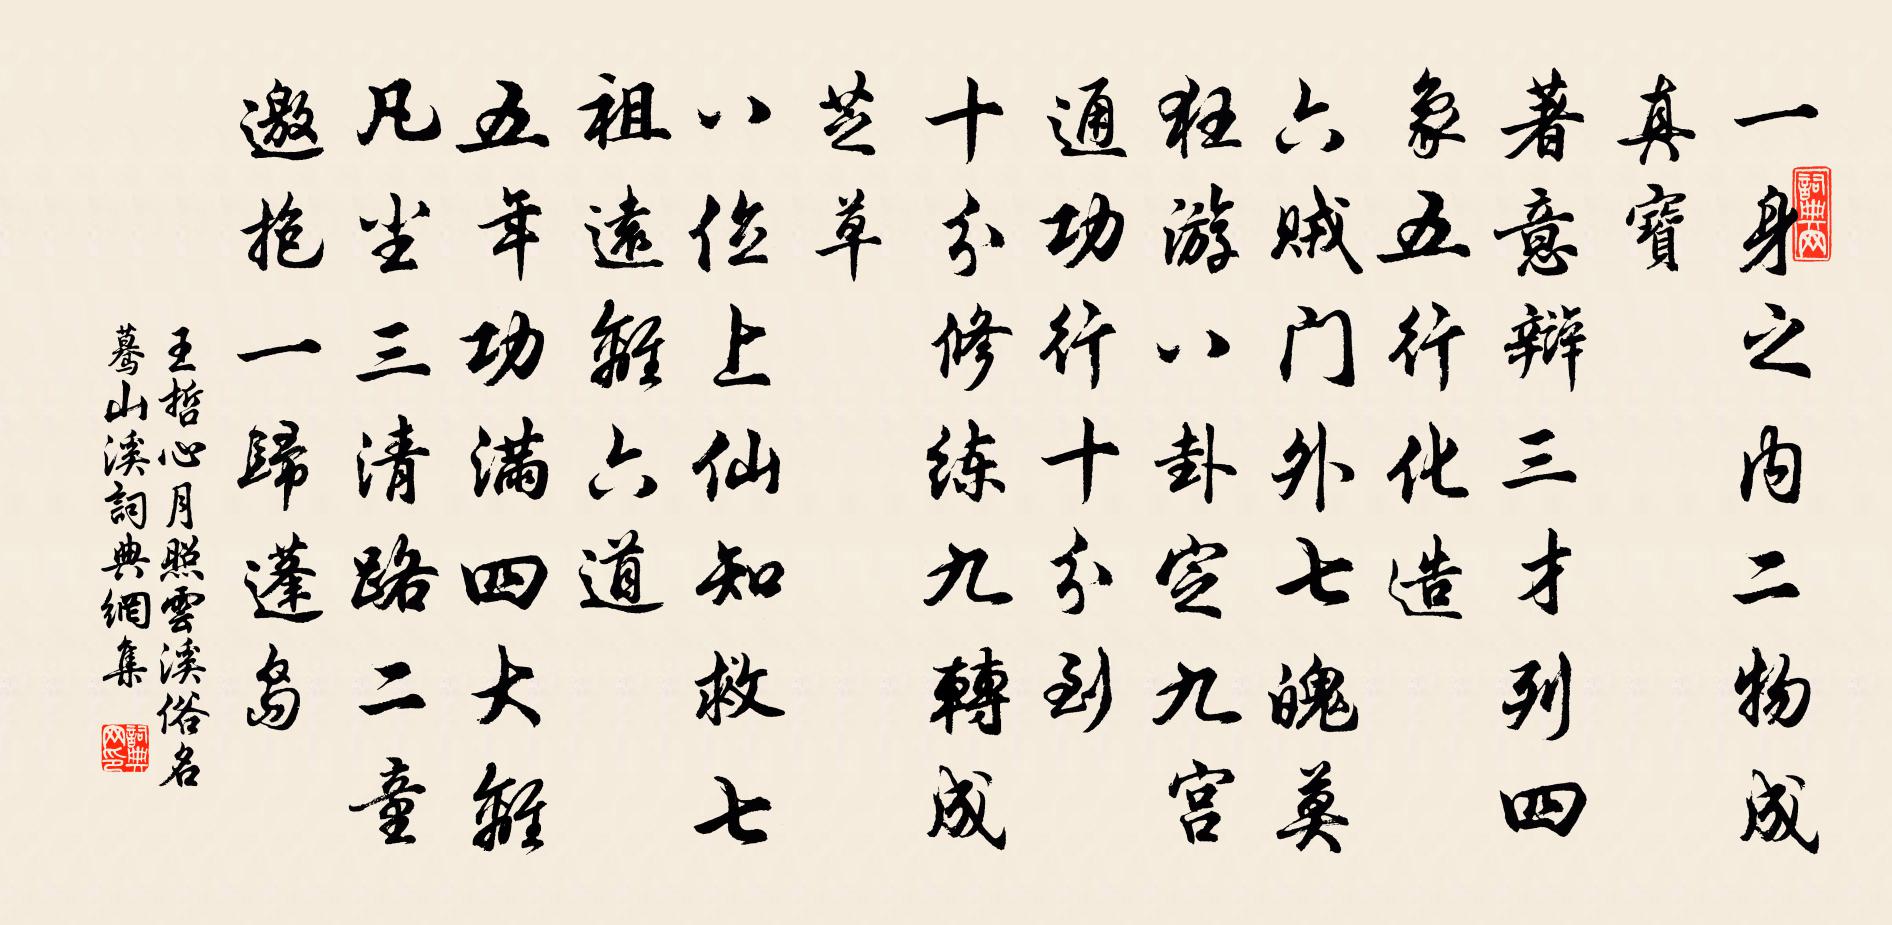 一身之内二物成
真寶
著意辯三才列四
象五行化造
六賊门外七魄莫
狂游八卦定九宫
通功行十分到
十分修练九轉成
芝草
八位上仙知救七
祖遠離六道
五年功满四大離
凡尘三清路二童
邀抱一歸蓬島
王哲心月照雲溪俗名
驀山溪詞典網集
詞典网
詞典网印